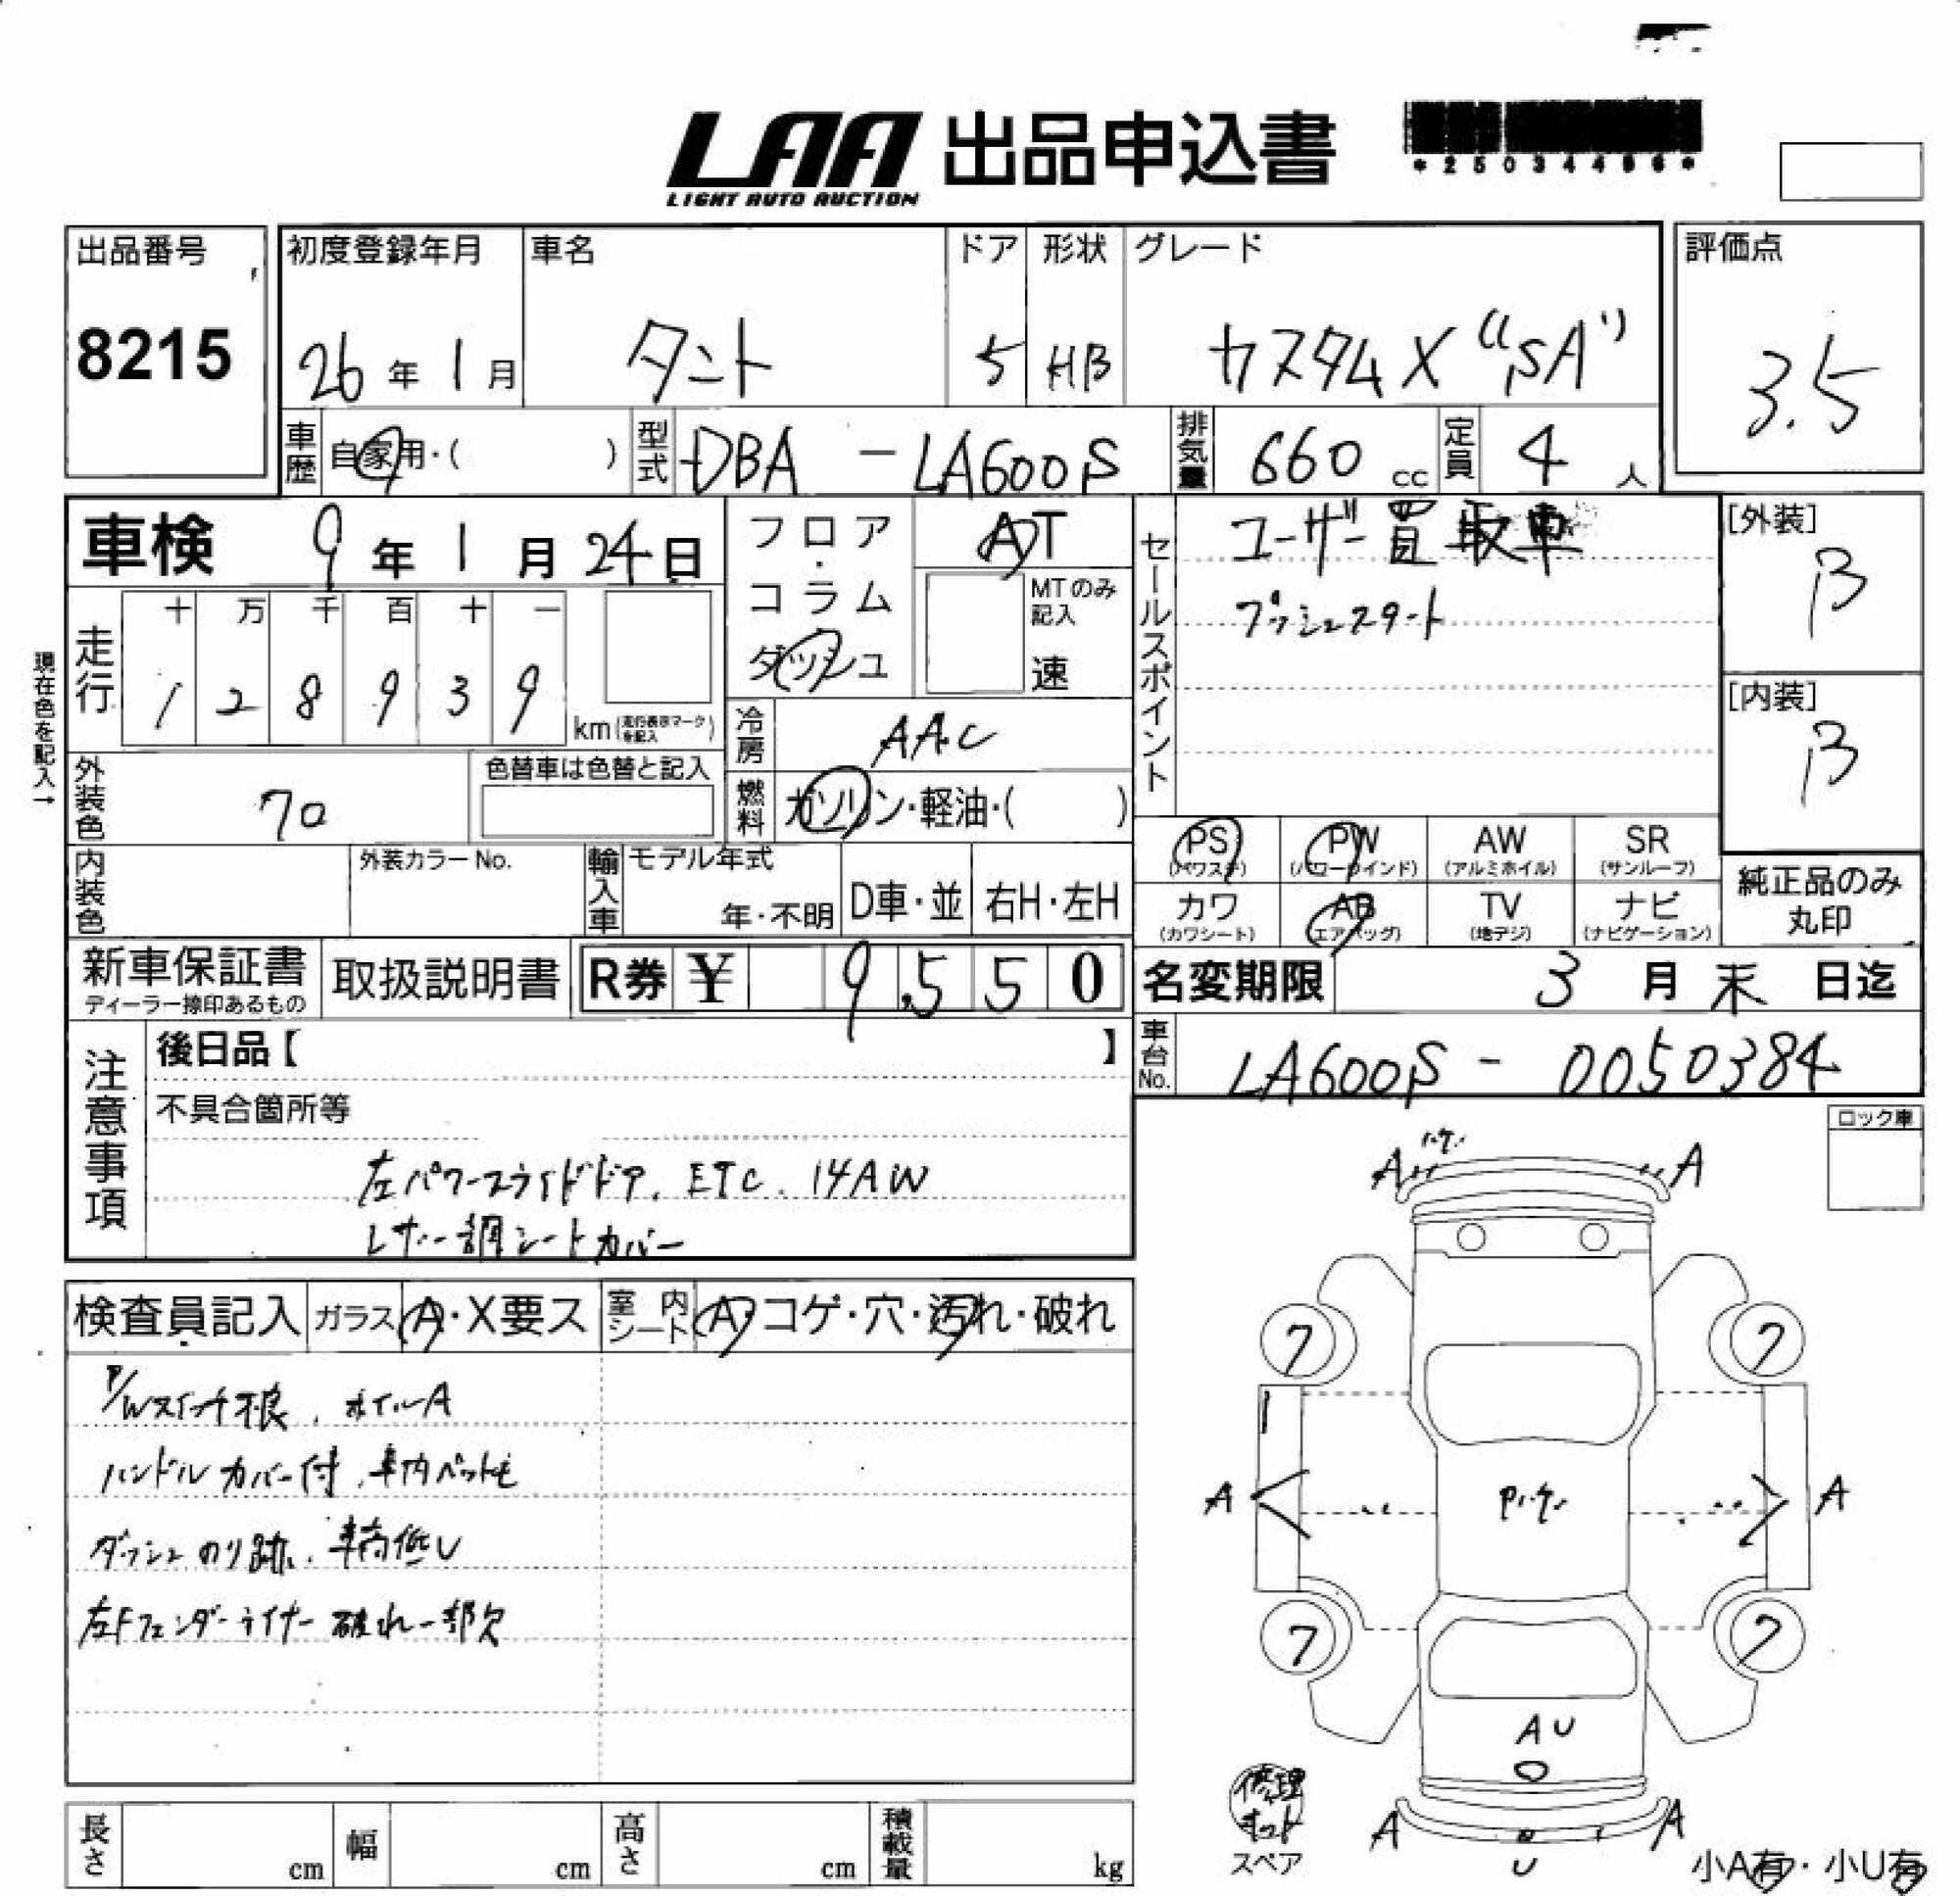 LAA 出品申込書
LIGHT AUTO AUCTION
*25034496*
出品番号 初度登録年月 車名 ドア 形状 グレード 評価点
8215 26年1月 タント 5 HB カスタムX "SA" 3.5
車歴 自家用・( ) 型式 DBA - LA600S 排気量 660cc 定員 4人
車検 9年1月24日 フロア・コラム ダッシュ AT
MTのみ記入 速
セールスポイント ユーザー買取車
プッシュスタート
[外装] B
[内装] B
現在色を記入→
走行 十 万 千 百 十 一
1 2 8 9 3 9 km (走行表示マークを記入)
冷房 AAC
外装色 70 色替車は色替と記入
燃料 ガソリン・軽油・( )
PS (パワステ) PW (パワーウインド) AW (アルミホイル) SR (サンルーフ)
カワ (カワシート) AB (エアバッグ) TV (地デジ) ナビ (ナビゲーション)
純正品のみ丸印
内装色 外装カラーNo. 輸入車 モデル年式 年・不明 D車・並 右H・左H
新車保証書 ディーラー捺印あるもの 取扱説明書 R券 ¥ 9,550
名変期限 3月末日迄
車台No. LA600S - 0050384
注意事項 後日品【 】
不具合箇所等
左パワースライドドア. ETC. 14AW
レザー調シートカバー
ロック車
検査員記入 ガラス A・X要ス 室内シート A・コゲ・穴・汚れ・破れ
P/Wスイッチ不良. ホイールA
ハンドルカバー付. 車内ペット毛
ダッシュのり跡. 車高低い
左Fフェンダーライナー破れ一部欠
A ハゲ A
7 7
A A
7 7
A U
A U A
修理キット
スペア
小A有・小U有
長さ cm 幅 cm 高さ cm 積載量 kg